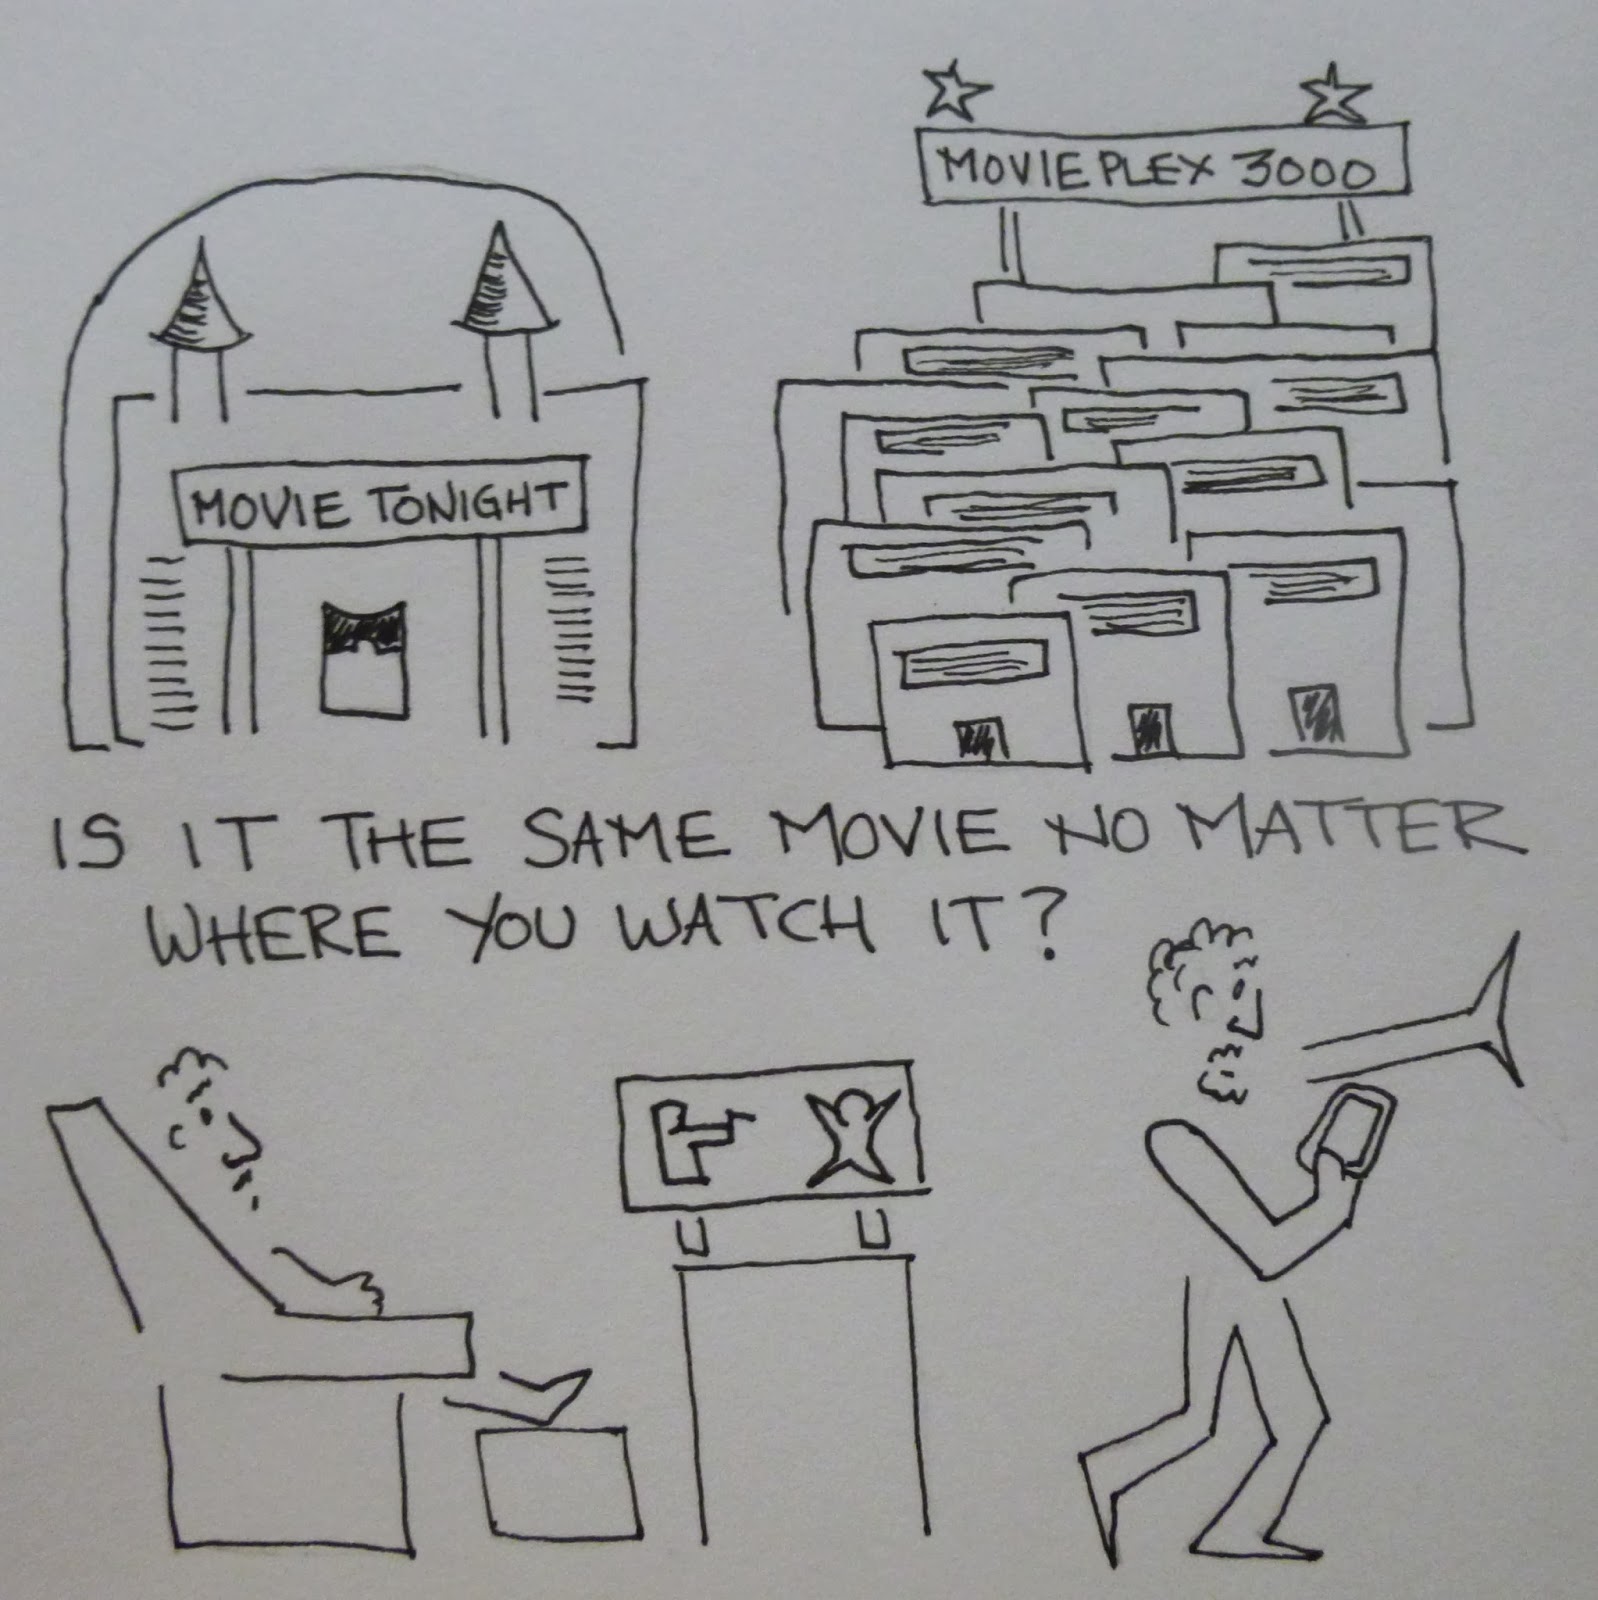 MOVIE PLEX 3000
MOVIE TONIGHT
IS IT THE SAME MOVIE NO MATTER
WHERE YOU WATCH IT?